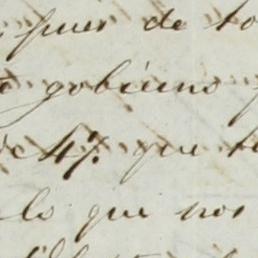 pues de to
gobierno
de 47. que t
lo que nos